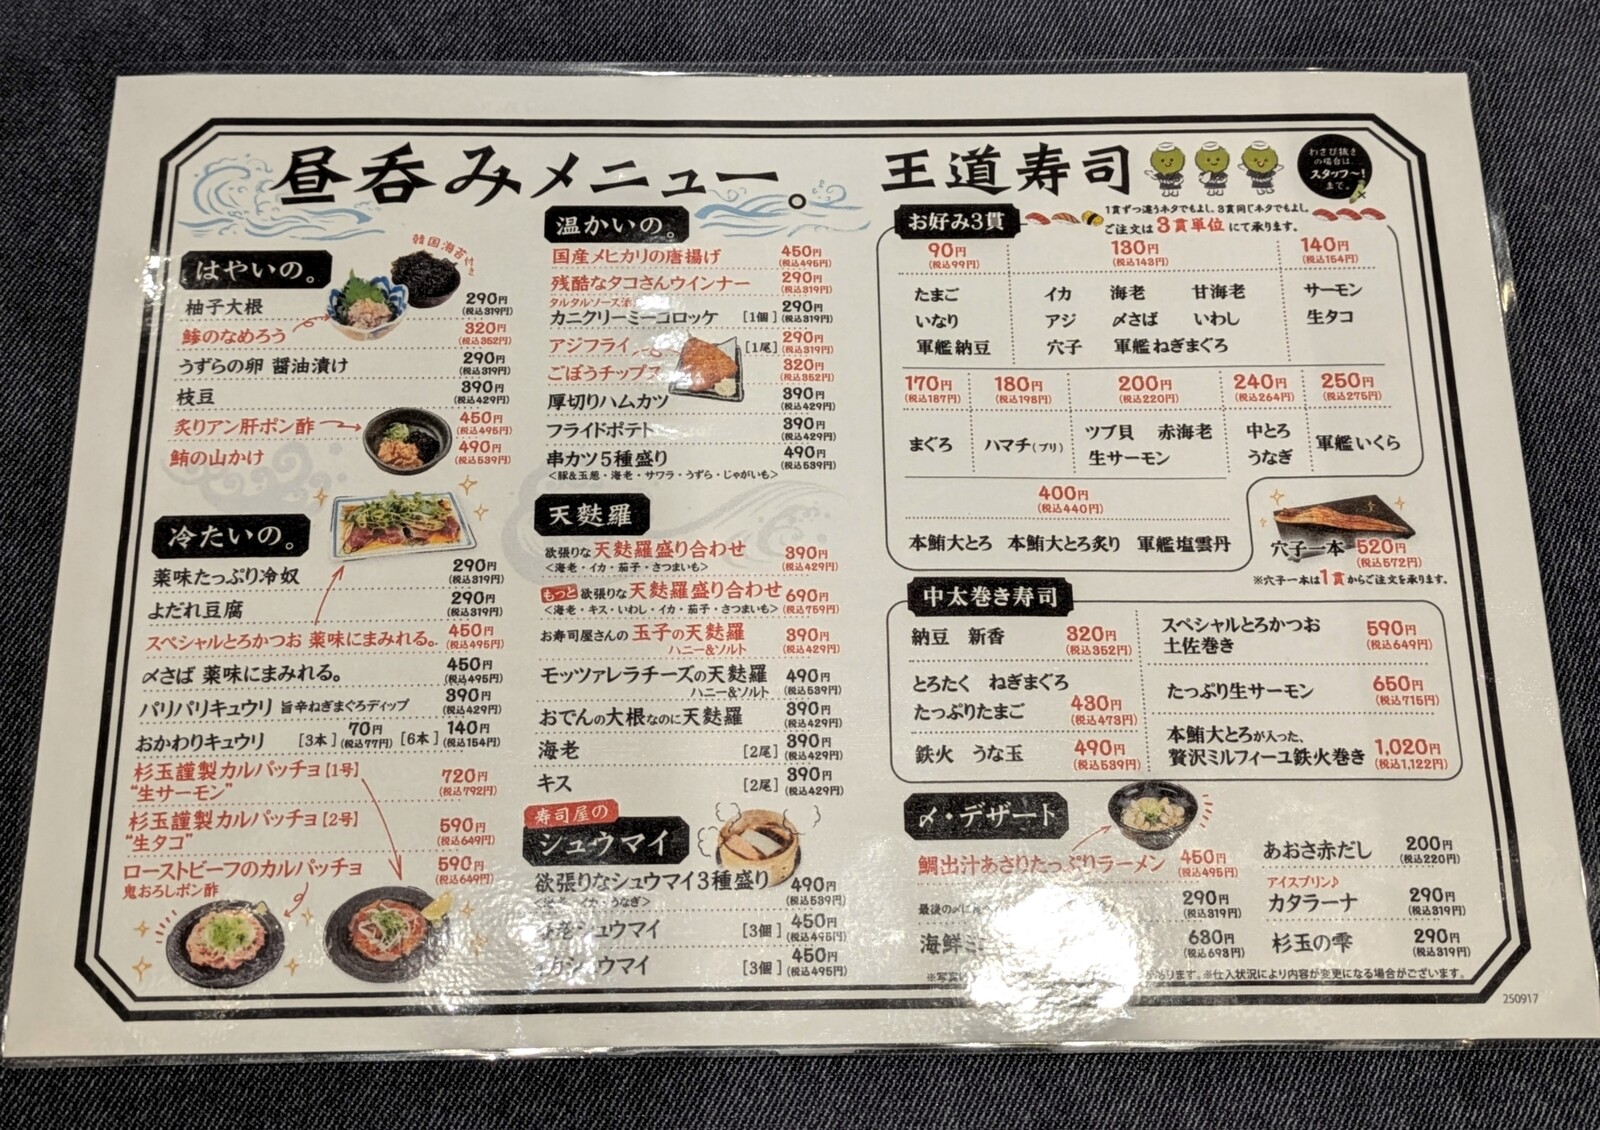 昼呑みメニュー。
はやいの。
韓国海苔付き
柚子大根 290円 (税込319円)
鯵のなめろう 320円 (税込352円)
うずらの卵 醤油漬け 290円 (税込319円)
枝豆 390円 (税込429円)
炙りアン肝ポン酢 450円 (税込495円)
鮪の山かけ 490円 (税込539円)
冷たいの。
薬味たっぷり冷奴 290円 (税込319円)
よだれ豆腐 290円 (税込319円)
スペシャルとろかつお 薬味にまみれる。 450円 (税込495円)
〆さば 薬味にまみれる。 450円 (税込495円)
パリパリキュウリ 旨辛ねぎまぐろディップ 390円 (税込429円)
おかわりキュウリ [3本] 70円 (税込77円) [6本] 140円 (税込154円)
杉玉謹製カルパッチョ【1号】
“生サーモン” 720円 (税込792円)
杉玉謹製カルパッチョ【2号】
“生タコ” 590円 (税込649円)
ローストビーフのカルパッチョ 590円 (税込649円)
鬼おろしポン酢
温かいの。
国産メヒカリの唐揚げ 450円 (税込495円)
残酷なタコさんウインナー 290円 (税込319円)
タルタルソース
カニクリーミーコロッケ [1個] 290円 (税込319円)
アジフライ [1尾] 290円 (税込319円)
ごぼうチップス 320円 (税込352円)
厚切りハムカツ 390円 (税込429円)
フライドポテト 390円 (税込429円)
串カツ5種盛り 490円 (税込539円)
<豚&玉葱・海老・サワラ・うずら・じゃがいも>
天麩羅
欲張りな天麩羅盛り合わせ 390円 (税込429円)
<海老・イカ・茄子・さつまいも>
もっと欲張りな天麩羅盛り合わせ 690円 (税込759円)
<海老・キス・いわし・イカ・茄子・さつまいも>
お寿司屋さんの玉子の天麩羅 390円 (税込429円)
ハニー&ソルト
モッツァレラチーズの天麩羅 490円 (税込539円)
ハニー&ソルト
おでんの大根なのに天麩羅 390円 (税込429円)
海老 [2尾] 390円 (税込429円)
キス [2尾] 390円 (税込429円)
寿司屋の
シュウマイ
欲張りなシュウマイ3種盛り 490円 (税込539円)
イカ・うなぎ>
シュウマイ [3個] 450円 (税込495円)
イカシュウマイ [3個] 450円 (税込495円)
王道寿司
わさび抜き
の場合は…
スタッフ〜!
まで。
お好み3貫
1貫ずつ違うネタでもよし、3貫同じネタでもよし。
ご注文は3貫単位にて承ります。
90円 (税込99円) 130円 (税込143円) 140円 (税込154円)
たまご イカ 海老 甘海老 サーモン
いなり アジ 〆さば いわし 生タコ
軍艦納豆 穴子 軍艦ねぎまぐろ
170円 (税込187円) 180円 (税込198円) 200円 (税込220円) 240円 (税込264円) 250円 (税込275円)
まぐろ ハマチ(ブリ) ツブ貝 赤海老 生サーモン 中とろ うなぎ 軍艦いくら
400円 (税込440円)
本鮪大とろ 本鮪大とろ炙り 軍艦塩雲丹
穴子一本 520円 (税込572円)
※穴子一本は1貫からご注文を承ります。
中太巻き寿司
納豆 新香 320円 (税込352円)
とろたく ねぎまぐろ
たっぷりたまご 430円 (税込473円)
鉄火 うな玉 490円 (税込539円)
スペシャルとろかつお
土佐巻き 590円 (税込649円)
たっぷり生サーモン 650円 (税込715円)
本鮪大とろが入った、
贅沢ミルフィーユ鉄火巻き 1,020円 (税込1,122円)
〆・デザート
鯛出汁あさりたっぷりラーメン 450円 (税込495円)
最後の〆に 290円 (税込319円)
海鮮ミニ 630円 (税込693円)
あおさ赤だし 200円 (税込220円)
アイスプリン♪
カタラーナ 290円 (税込319円)
杉玉の雫 290円 (税込319円)
※写真 あります。※仕入状況により内容が変更になる場合がございます。
250917